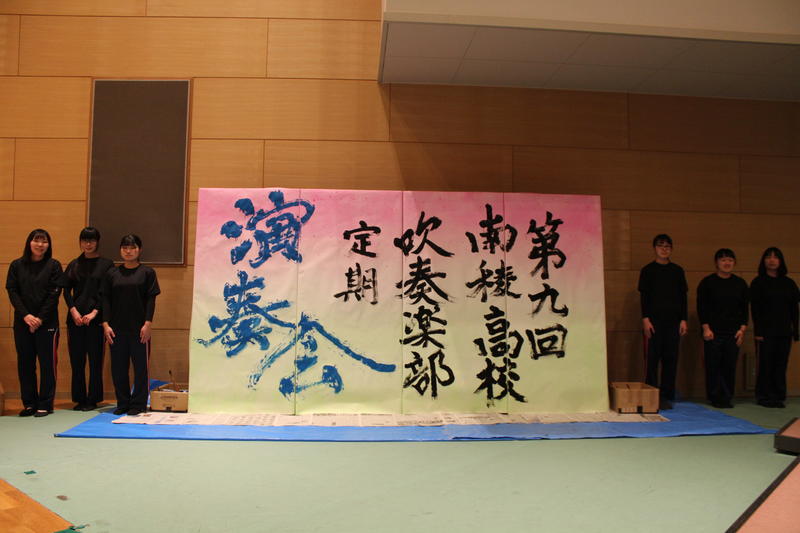 第九回
南稜高校
吹奏楽部
定期
演奏会